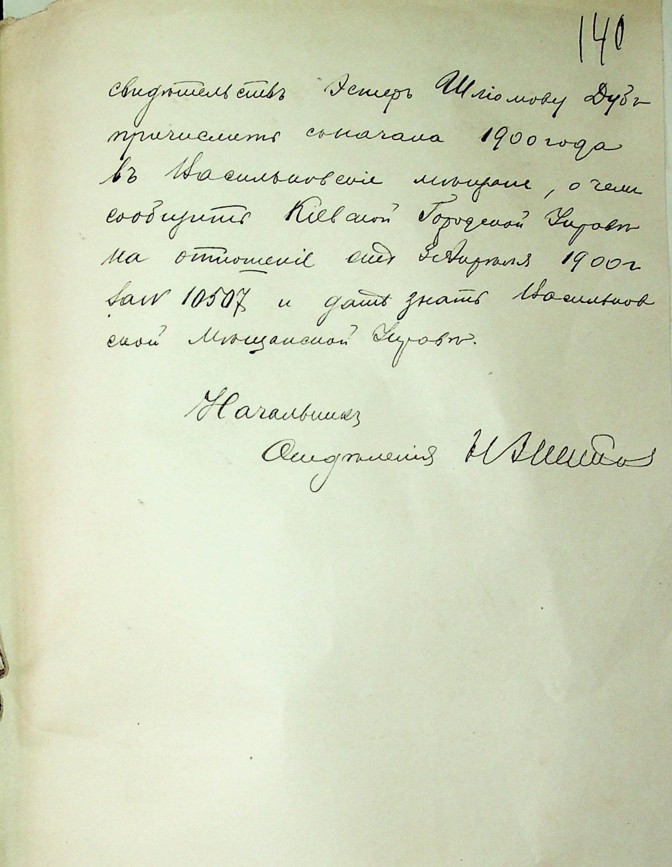 140
свидѣтельствъ Эстеръ Шліомову Дубъ
причислить сначала 1900 года
въ Васильковскіе мѣщане, о чемъ
сообщить Кіевской Городской Управѣ
на отношеніе отъ 3 Апрѣля 1900 г
за № 10507 и дать знать Васильков
ской Мѣщанской Управѣ.
Начальникъ
Отдѣленія